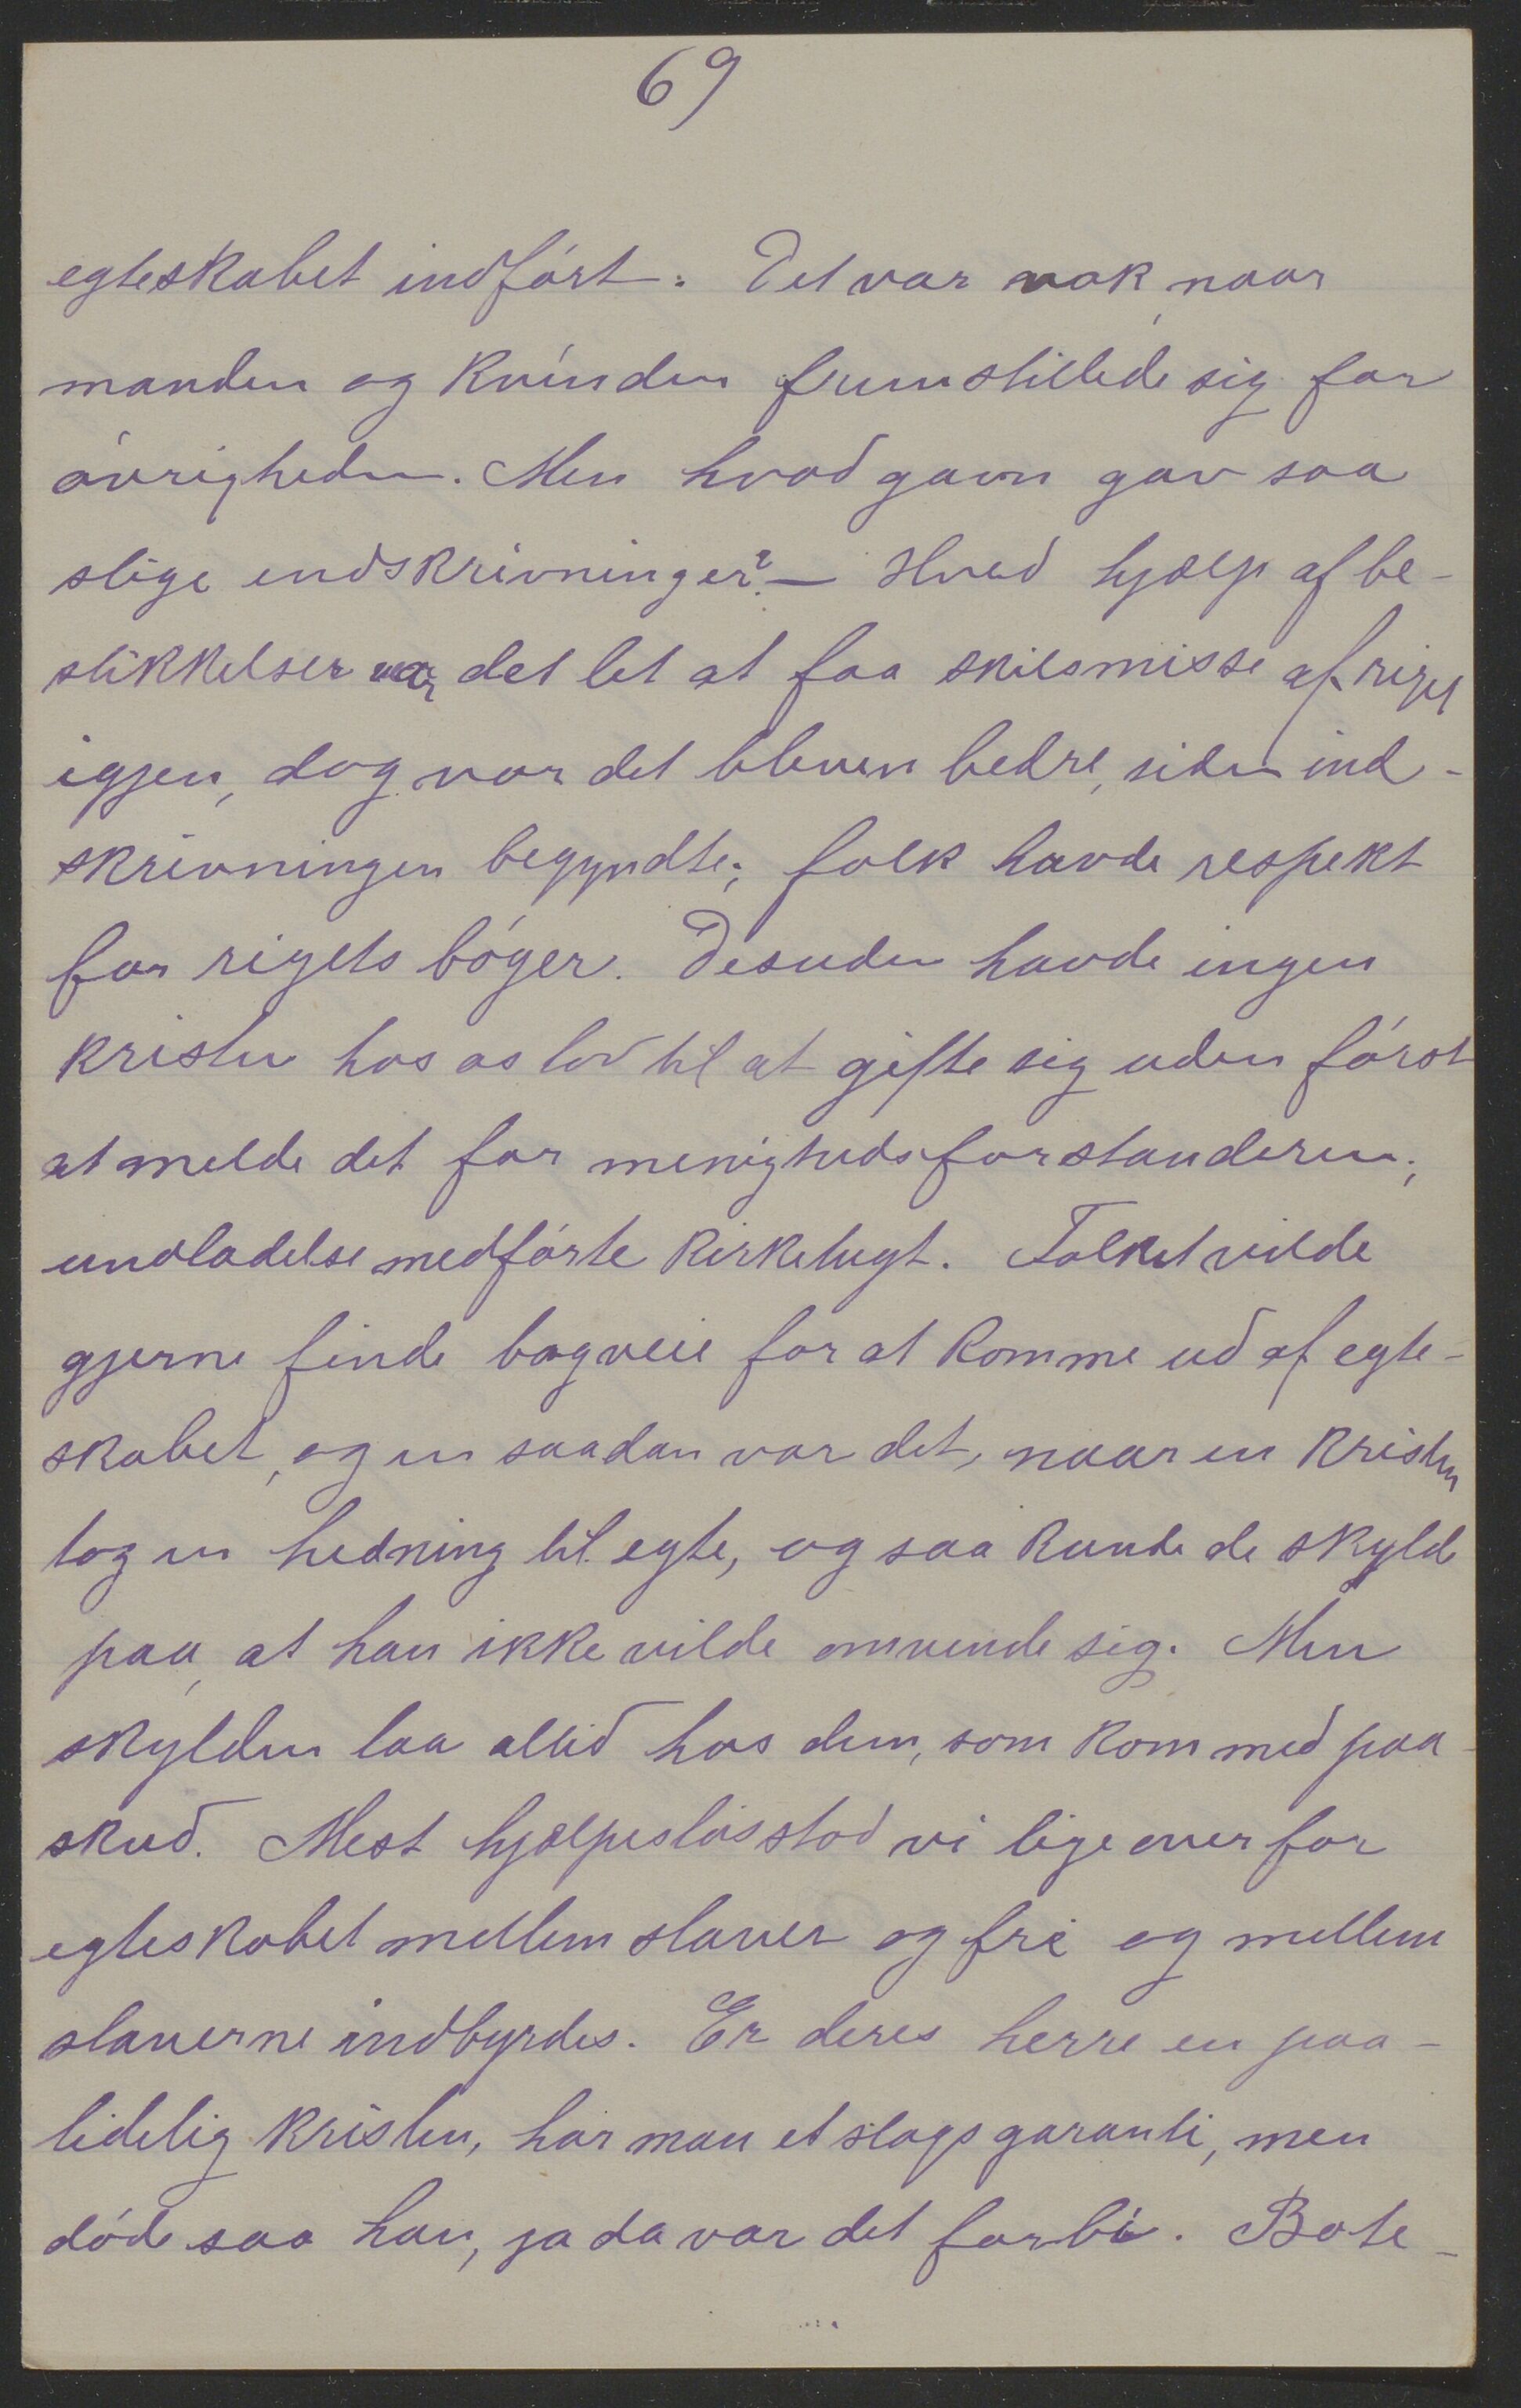 69
egteskabet indført. Det var nok, naar
manden og kvinden fremstillede sig for
øvrigheden. Men hvad gavn gav saa
slige indskrivninger? – Hved hjælp af be-
stikkelser var det let at faa skilsmisse af riget
igjen, dog var det bleven bedre, siden ind-
skrivningen begyndte; folk havde respekt
for rigets bøger. Desuden havde ingen
kristen hos os lov til at gifte sig uden først
at melde det for menighedsforstanderen;
undladelse medførte kirketugt. Folket vilde
gjerne finde bagveie for at komme ud af egte-
skabet, og en saadan var det, naar en kristen
tog en hedning til egte, og saa kunde de skylde
paa, at han ikke vilde omvende sig. Men
skylden laa altid hos dem, som kom med paa-
skud. Mest hjælpesløs stod vi lige over for
egteskabet mellem slaver og fri og mellem
slaverne indbyrdes. Er deres herre en paa-
lidelig kristen, har man et slags garanti, men
døde saa han, ja da var det forbi. Bote-